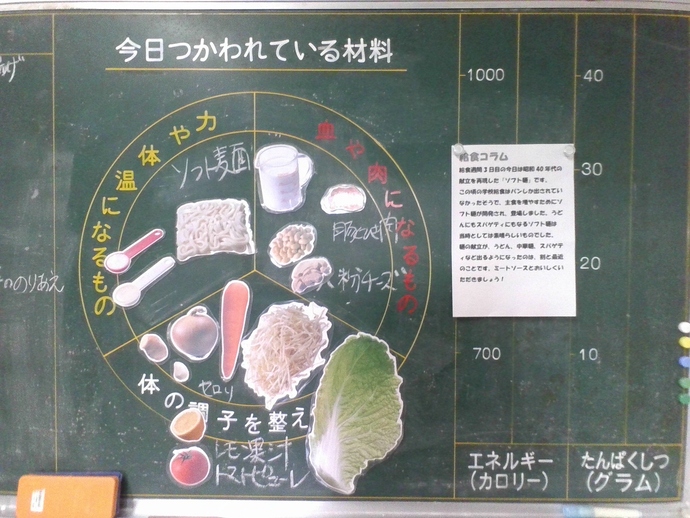 今日つかわれている材料
力や体温になるもの
血や肉になるもの
体の調子を整え
ソフト麺
粉チーズ
セロリ
レモン果汁
トマトピューレ
のりあえ
給食コラム
給食週間3日目の今日は昭和40年代の
献立を再現した「ソフト麺」です。
この頃の学校給食はパンしか出されてい
なかったそうで、主食を増やすためにソ
フト麺が開発され、登場しました。うど
んにもスパゲティにもなるソフト麺は
当時としては素晴らしいものでした。
麺の献立が、うどん、中華麺、スパゲテ
ィなど出るようになったのは、割と最近
のことです。ミートソースとおいしくい
ただきましょう！
1000
700
40
30
20
10
エネルギー
(カロリー)
たんぱくしつ
(グラム)